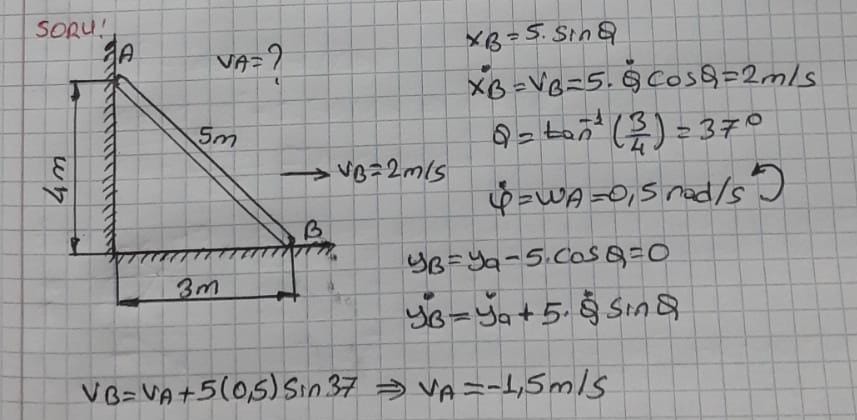 SORU!
A
VA=?
4m
5m
→ VB=2m/s
B
3m
xB=5.sinQ
ẋB=VB=5.Q̇cosQ=2m/s
Q=tan⁻¹(3/4)=37°
φ̇=WA=0,5rad/s
yB=ya-5.cosQ=0
ẏB=ẏa+5.Q̇ sinQ
VB=VA+5(0,5)sin37 ⇒ VA=-1,5m/s